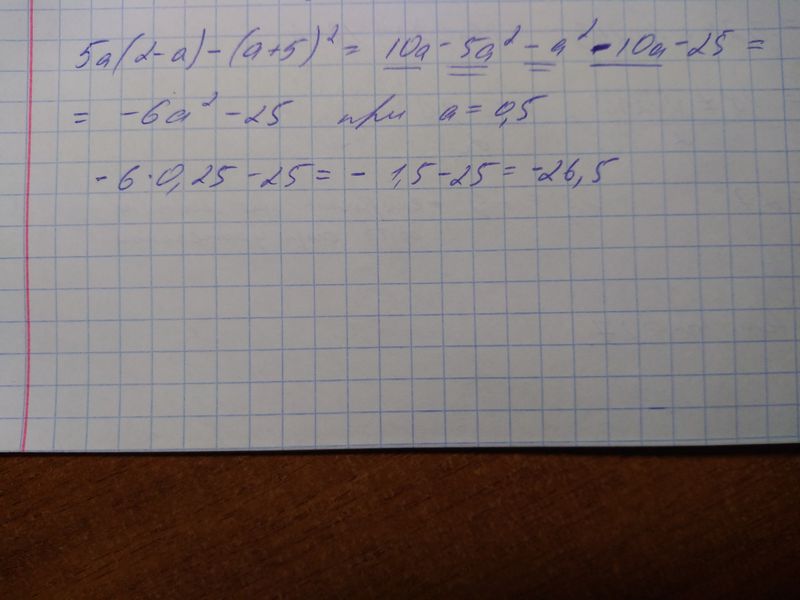 5a(2-a)-(a+5)²= 10a-5a²-a²-10a-25=
= -6a²-25 при a=0,5
-6·0,25-25=- 1,5-25=-26,5